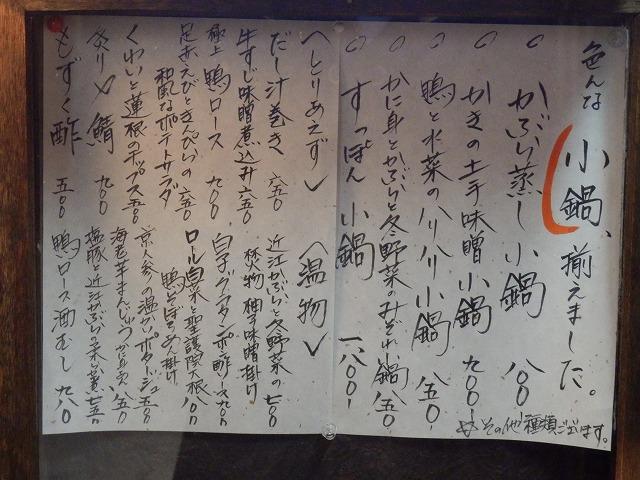 色んな小鍋、揃えました。
かぶら蒸し小鍋 八〇〇
かきの土手味噌小鍋 九〇〇-
その他種類ございます。
鴨と水菜のハリハリ小鍋 八五〇
かに身とかぶらと冬野菜のみぞれ小鍋 八五〇
すっぽん小鍋 一八〇〇-
〈とりあえず〉
だし汁巻き 六五〇
牛すじ味噌煮込み 六五〇
極上鴨ロース 九〇〇
足赤えびときんぴらの 六五〇
和風なポテトサラダ
くわいと蓮根のチップス 五〇〇
炙り〆鯖 九〇〇
もずく酢 五〇〇
〈温物〉
近江かぶらと冬野菜の 七〇〇
炊合 柚子味噌掛け
白子グラタン ポン酢ソース 九〇〇
ロール白菜と聖護院大根 八〇〇
鴨そぼろあん掛け
京人参の温かいポタージュ 五〇〇
海老芋まんじゅう かに身入り 八五〇
塩豚と近江かぶらの柔らか煮 七五〇
鴨ロース酒むし 九八〇